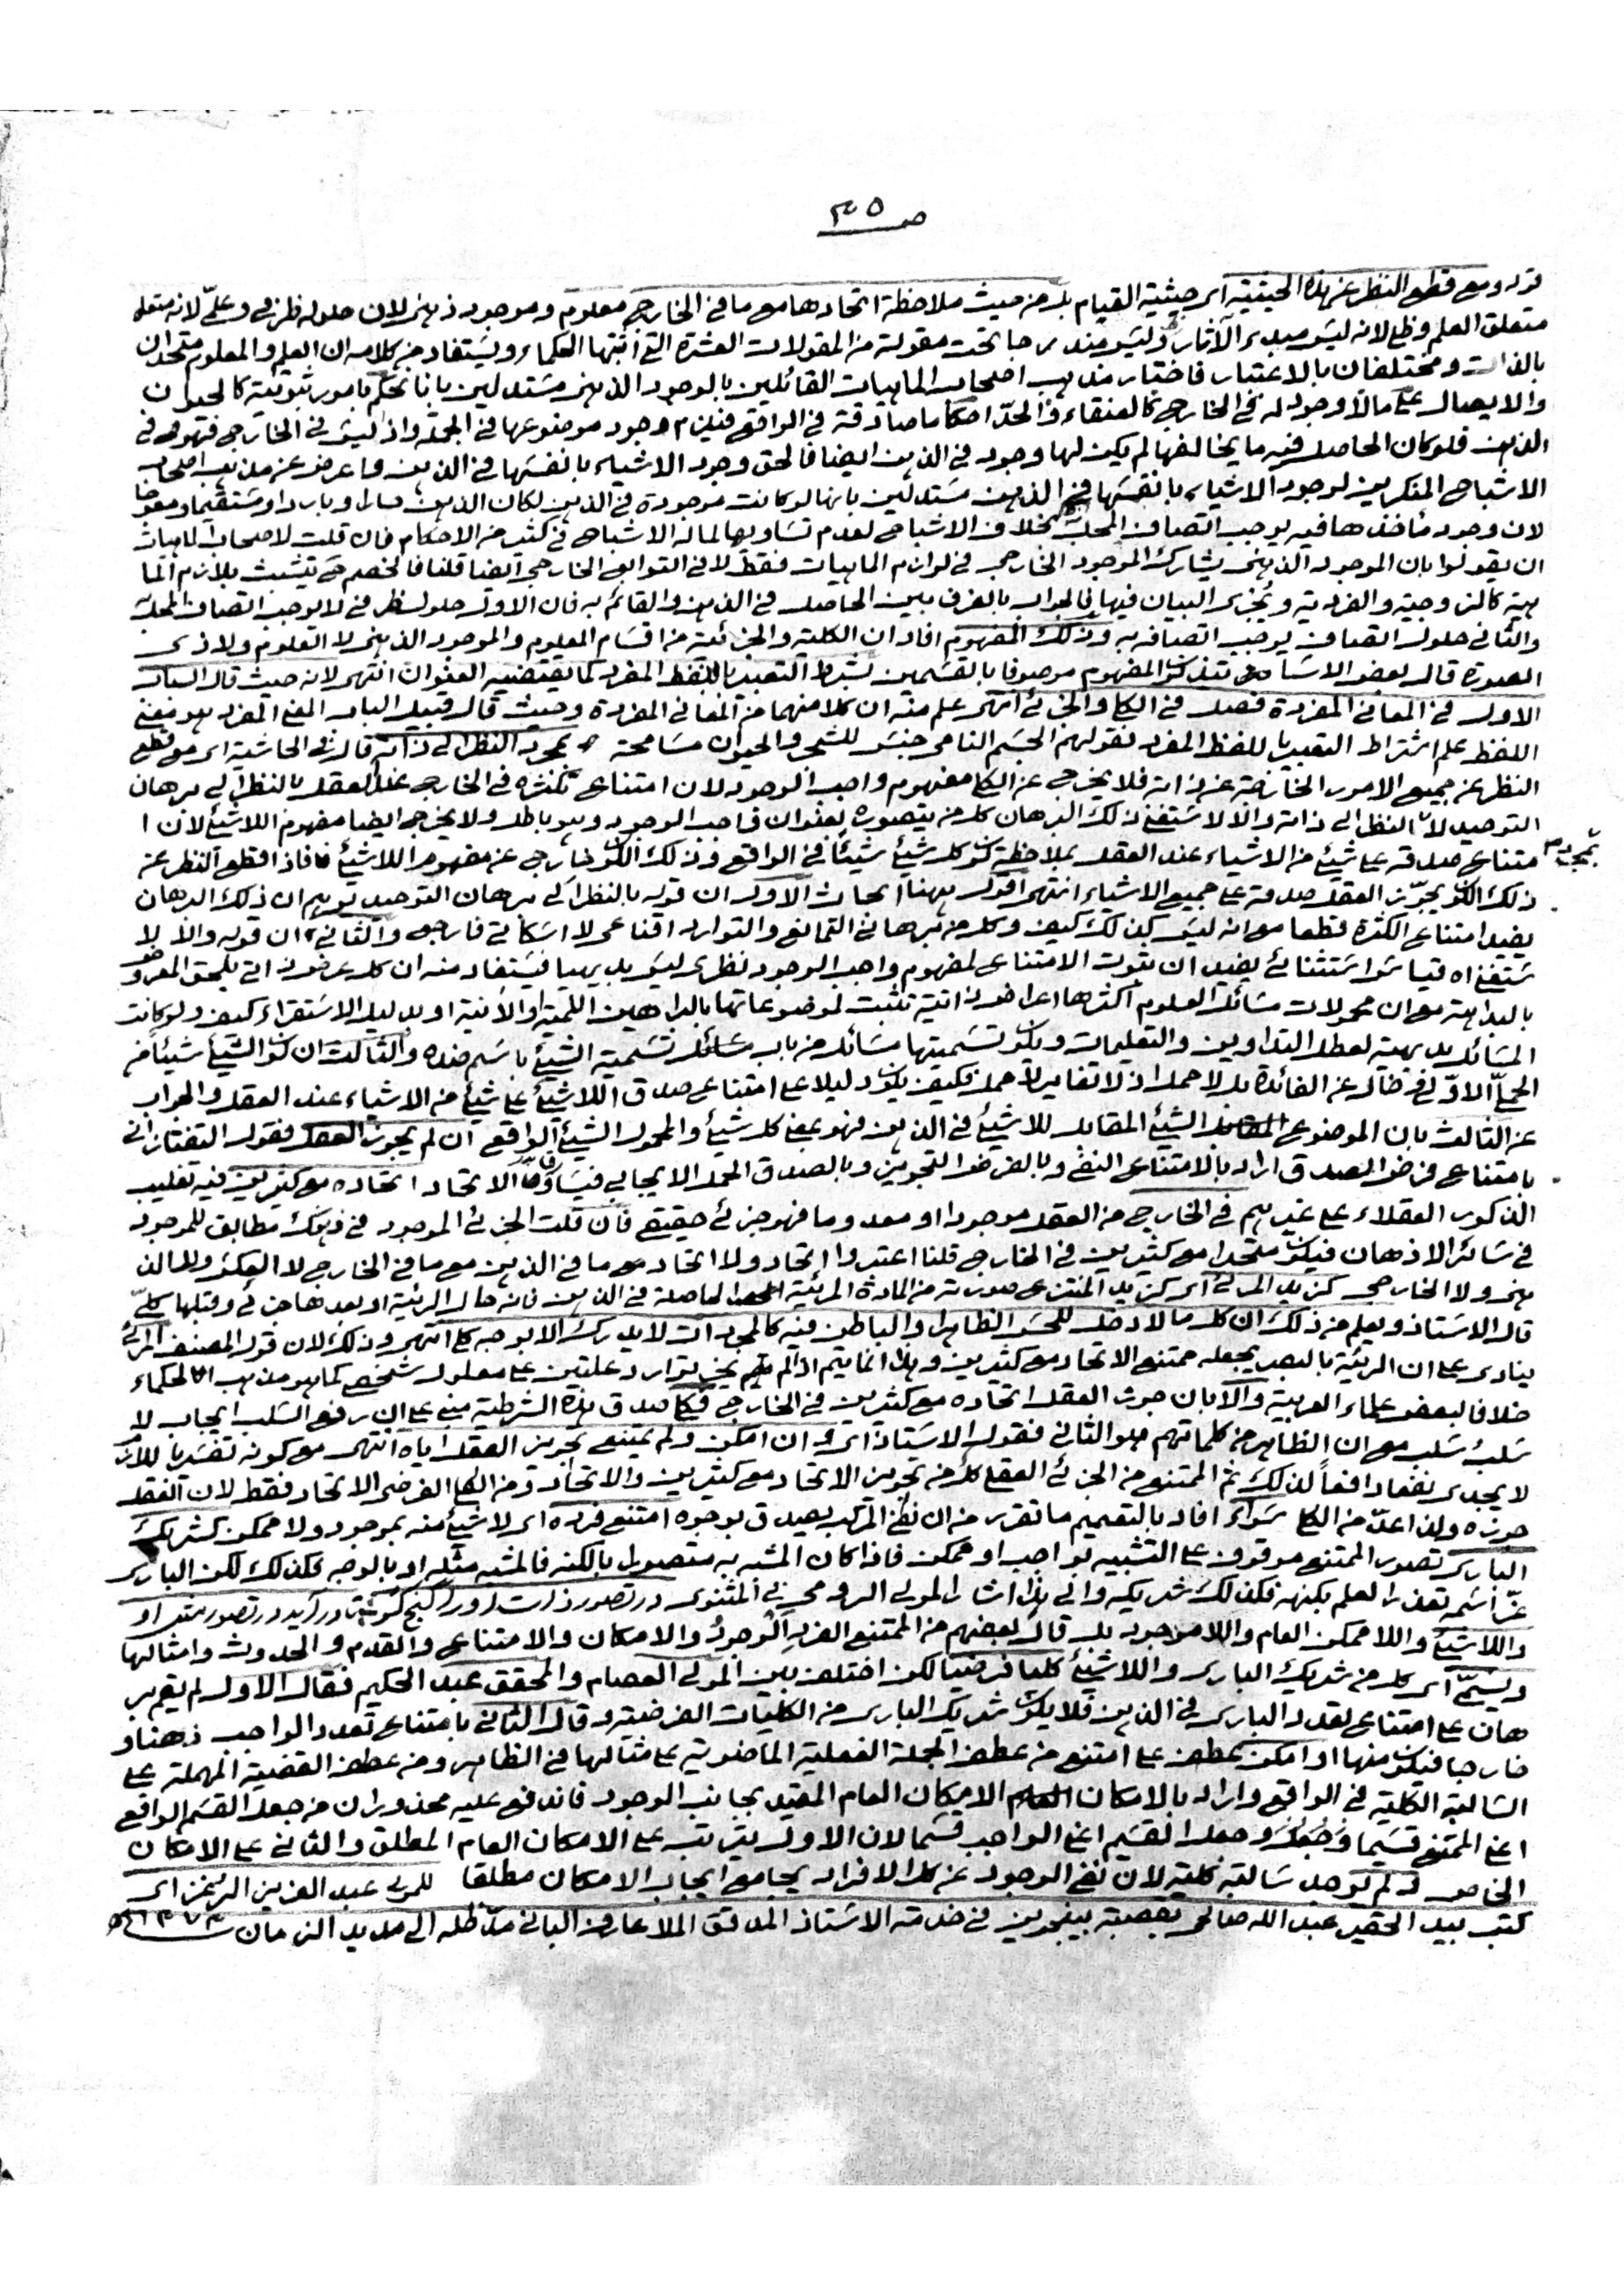 ص ٣٥
قوله ومع قطع النظر عن هذه الحيثية اى حيثية القيام بل من حيث ملاحظة اتحادها مع ما في الخارج معلوم وموجود ذهنى لان حلوله ظرفي وعلىّ لانه متعلق
متعلق العلم وظلى لانه ليس مبدء الآثار وليس مندرجا تحت مقولة من المقولات العشرة التي اثبتها الحكماء ويستفاد من كلامه ان العلم والمعلوم متحدان
بالذات ومختلفان بالاعتبار فاختار مذهب اصحاب الماهيات القائلين بالوجود الذهنى مستدلين بانا نحكم بامور ثبوتية كالحيوان
والايصال على مالا وجود له في الخارج كالعنقاء والحدّ احكاما صادقة في الواقع فيلزم وجود موضوعها في الجملة واذ ليس في الخارج فهو في
الذهن فلو كان الحاصل فيه ما يخالفها لم يكن لها وجود في الذهن ايضا فالحق وجود الاشياء بانفسها في الذهن وما عرض عن مذهب اصحاب
الاشباح المنكرين لوجود الاشياء بانفسها في الذهن مستدلين بانها لو كانت موجودة في الذهن لكان الذهن حارا وباردا ومستقيما ومعوجا
لان وجود مأخذها فيه يوجب اتصاف المحل بخلاف الاشباح لعدم تساويها لماله الاشباح في كثير من الاحكام فان قلت لاصحاب الماهيات
ان يقولوا بان الموجود الذهنى يشارك الموجود الخارجى في لوازم الماهيات فقط لا في التوابع الخارجى ايضا قلنا فالخصم حى يتشبث بلازم الما
هية كالزوجية والفردية ويجرى البيان فيها فالجواب بالفرق بين الحاصل في الذهن والقائم به فان الاول حلول ظرفى لا يوجب اتصاف المحل
والثانى حلول اتصاف يوجب اتصافه به وذلك المفهوم افاد ان الكلية والجزئية من اقسام المعلوم والموجود الذهنى لا العلوم ولا ذى
الصورة قال بعض الاستا تذكر المفهوم موصوفا بالقسمين بشرط التعبير باللفظ المفرد كما يقتضيه العنوان انتهى لانه حيث قال الباب
الاول في المعانى المفردة فصل في الكلى والجزئى انتهى علم منه ان كلا منهما من المعانى المفردة وحيث قال قبيل الباب المعنى المفرد هو معنى
اللفظ علم اشتراط التعبير باللفظ المفرد فقولهم الجسم النامى جنس للشجر والحيوان مسامحة بمجرد النظر الى ذاته قال في الحاشية اى مع قطع
النظر عن جميع الامور الخارجة عن ذاته فلا يخرج عن الكلى مفهوم واجب الوجود لان امتناع تكثره في الخارج عند العقل بالنظر الى برهان
التوحيد لا بالنظر الى ذاته والا لاستغنى ذلك البرهان كل من يتصوره بعنوان واجب الوجود وهو باطل ولا يخرج ايضا مفهوم اللاشيئ لان ا
متناع صدقه على شيئ من الاشياء عند العقل بملاحظة كون كل شيئ شيئا في الواقع وذلك الكون خارج عن مفهوم اللاشيئ فاذا قطع النظر عن
ذلك الكون يجوّز العقل صدقه على جميع الاشياء انتهى اقول ههنا ابحاث الاول ان قوله بالنظر الى برهان التوحيد يوهم ان ذلك البرهان
يفيد امتناع الكثرة قطعا مع انه ليس كذلك كيف وكل من برهانى التمانع والتوارد اقناعى لا اسكاتى فارجع والثانى ان قوله والا لا
ستغنى اه قياس استثنائى يفيد ان ثبوت الامتناع لمفهوم واجب الوجود نظرى ليس بديهيا فيستفاد منه ان كل عرض ذاتى يلحق المعروض
بالبداهة مع ان محمولات مسائل العلوم اكثرها اعراض ذاتية تثبت لموضوعاتها بالبراهين اللمية او الانية او بدليل الاستقراء كيف ولو كانت
المسائل بديهية لعطل التداوين والتعليمات ويكون تسميتها مسائل من باب تسمية الشيئ باسم ضده والثالث ان كون الشيئ شيئا من
الحمل الاوّلى فخال عن الفائدة بل لا حمل اذ لا تغاير لاحمل فكيف يكون دليلا على امتناع صدق اللاشيئ على شيئ من الاشياء عند العقل والجواب
عن الثالث بان الموضوع الشيئ المقابل للاشيئ في الذهن فهو بمعنى كل شيئ والمحمول الشيئ الواقع ان لم يجوز العقل فقول التفتازانى
بامتناع فرض الصدق اراد بالامتناع النفى وبالفرض التجويز وبالصدق الحمل الايجابى فيساوقا الاتحاد اتحاده مع كثيرين فيه تغليب
الذكور العقلاء على غيرهم في الخارج من العقل موجودا او معدوما فهو جزئى حقيقى فان قلت الجزئى الموجود في ذهنك مطابق للموجود
في سائر الاذهان فيكون متحدا مع كثيرين في الخارج قلنا اعتبروا اتحاد ولا اتحاد مع ما في الذهن مع ما في الخارج لا العكس وللمالذ
هنى ولا الخارجى كزيد المرئى اى كزيد المنتزع صورته من المادة المرئية الحاصلة في الذهن فانه حال الرئية او بعدها جزئى وقبلها كلىّ
قال الاستاذ ويعلم من ذلك ان كل مالا دخل للحس الظاهر والباطن فيه كالمجردات لا يدرك الا بوجه كلى انتهى وذلك لان قول المصنف المرئى
ينادى على ان الرئية بالبصر يجعله ممتنع الاتحاد مع كثيرين وهذا انما يتم اذا لم يجز توارد علتين على معلول شخصى كما هو مذهب الحكماء
خلافا لبعض علماء العربية والا بان جوز العقل اتحاده مع كثيرين في الخارج فكلى صدق هذه الشرطية مبنى على ان رفع السلب ايجاب لا
سلب سلب مع ان الظاهر من كلماتهم هو الثانى فقول الاستاذ اى وان امكن ولم يمتنع تجويز العقل اياه انتهى مع كونه تفسيرا باللازم
لا يجدى نفعا دافعا لذلك ثم الممتنع من الجزئى العقلى كل من تجويز الاتحاد مع كثيرين والاتحاد ومن الكلى الفرضى الاتحاد فقط لان العقل
جوزه ولذا عدّ من الكلى سواء افاد بالتعميم ما تقرر من ان نفى المركب يصدق بوجوه امتنع فرده اى لا شيئ منه بموجود ولا ممكن كشريك
البارى تصور الممتنع موقوف على التشبيه بواجب او ممكن فاذا كان المشبه به متصورا بالكنه فالمشبه مثله او بالوجه فكذلك لكن البارى
عزّ اسمه تعذر العلم بكنهه فكذلك شريكه والى هذا اشار المولى الرومى في المثنوى در تصور ذات او را گنج كو ؛ تا در آيد در تصور مثل او
واللاشيئ واللاممكن العام واللاموجود بل قال بعضهم من الممتنع الفرد الوجود والامكان والامتناع والقدم والحدوث وامثالها
ويسمّى اى كل من شريك البارى واللاشيئ كليا فرضيا لكن اختلف بين المولى العصام والمحقق عبد الحكيم فقال الاول لم يقم بر
هان على امتناع تعدد البارى في الذهن فلا يكون شريك البارى من الكليات الفرضية وقال الثانى بامتناع تعدد الواجب ذهنا و
خارجا فيكون منها او امكن عطف على امتنع من عطف الجملة الفعلية الماضوية على مثالها في الظاهر ومن عطف القضية المهملة على
السالبة الكلية في الواقع واراد بالامكان الامكان العام المقيد بجانب الوجود فاندفع عليه محذوران من جعل القسم الواقع
اعنى الممتنع قسيما وجعل القسيم اعنى الواجب قسما لان الاول يترتب على الامكان العام المطلق والثانى على الامكان
الخاص ولم توجد سالبة كلية لان نفى الوجود عن كل الافراد يجامع ايجاب الامكان مطلقا للمولى عبد العزيز
كتب بيد الحقير عبد الله صالحى بقصبة بينجوين في خدمة الاستاذ المدقق الملا عارف البانى مدّ ظله الى مديد الزمان